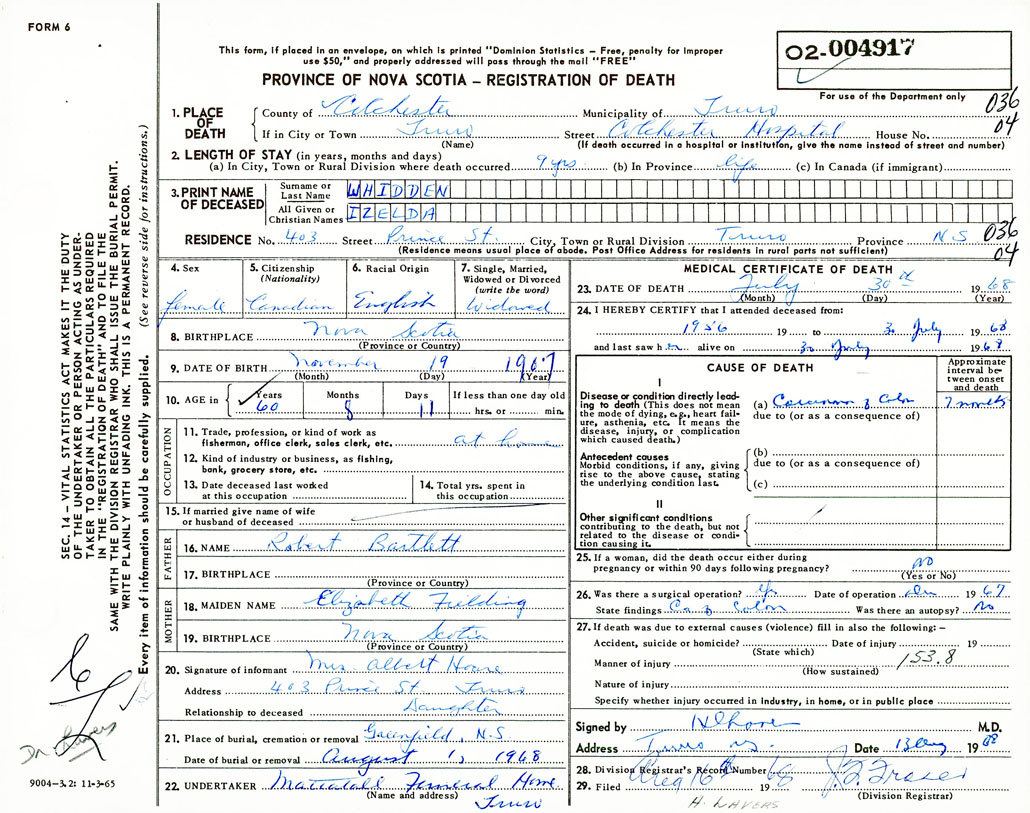 FORM 6
This form, if placed in an envelope, on which is printed "Dominion Statistics – Free, penalty for improper
use $50," and properly addressed will pass through the mail "FREE"
PROVINCE OF NOVA SCOTIA – REGISTRATION OF DEATH
02-004917
For use of the Department only
036
04
1. PLACE OF DEATH
County of Colchester Municipality of Truro
If in City or Town Truro Street Colchester Hospital House No.
(Name) (If death occurred in a hospital or institution, give the name instead of street and number)
2. LENGTH OF STAY (in years, months and days)
(a) In City, Town or Rural Division where death occurred 9 yrs. (b) In Province life (c) In Canada (if immigrant)
3. PRINT NAME OF DECEASED
Surname or Last Name WHIDDEN
All Given or Christian Names IZELDA
RESIDENCE No. 403 Street Prince St. City, Town or Rural Division Truro Province N.S
036
04
(Residence means usual place of abode. Post Office Address for residents in rural parts not sufficient)
4. Sex
female
5. Citizenship
(Nationality)
Canadian
6. Racial Origin
English
7. Single, Married,
Widowed or Divorced
(write the word)
Widowed
8. BIRTHPLACE Nova Scotia
(Province or Country)
9. DATE OF BIRTH November 19 1907
(Month) (Day) (Year)
10. AGE in
Years 60
Months 8
Days 11
If less than one day old
hrs. or min.
OCCUPATION
11. Trade, profession, or kind of work as
fisherman, office clerk, sales clerk, etc. at home
12. Kind of industry or business, as fishing,
bank, grocery store, etc.
13. Date deceased last worked
at this occupation
14. Total yrs. spent in
this occupation
15. If married give name of wife
or husband of deceased
FATHER
16. NAME Robert Bartlett
17. BIRTHPLACE
(Province or Country)
MOTHER
18. MAIDEN NAME Elizabeth Fielding
19. BIRTHPLACE Nova Scotia
(Province or Country)
20. Signature of informant Mrs. Albert
Address 403 Prince St. Truro
Relationship to deceased Daughter
21. Place of burial, cremation or removal Greenfield, N.S.
Date of burial or removal August 1, 1968
22. UNDERTAKER Mattatall Funeral Home
(Name and address) Truro
MEDICAL CERTIFICATE OF DEATH
23. DATE OF DEATH July 30th 1968
(Month) (Day) (Year)
24. I HEREBY CERTIFY that I attended deceased from:
1956 19 to 30 July 1968
and last saw her alive on 30 July 1968
CAUSE OF DEATH
Approximate interval between onset and death
I
Disease or condition directly leading to death (This does not mean the mode of dying, e.g., heart failure, asthenia, etc. It means the disease, injury, or complication which caused death.)
(a) Carcinoma of Colon 7 months
due to (or as a consequence of)
Antecedent causes
Morbid conditions, if any, giving rise to the above cause, stating the underlying condition last.
(b)
due to (or as a consequence of)
(c)
II
Other significant conditions
contributing to the death, but not related to the disease or condition causing it.
25. If a woman, did the death occur either during
pregnancy or within 90 days following pregnancy? NO
(Yes or No)
26. Was there a surgical operation? Yes Date of operation Dec 1967
State findings Ca of Colon Was there an autopsy? No
27. If death was due to external causes (violence) fill in also the following: –
Accident, suicide or homicide? Date of injury 19
(State which)
Manner of injury 153.8
(How sustained)
Nature of injury
Specify whether injury occurred in industry, in home, or in public place
Signed by M.D.
Address Truro NS Date 13 Aug 1968
28. Division Registrar's Record Number
29. Filed Aug 16th 1968 J. F. Fraser
(Division Registrar)
H. LAVERS
SEC. 14 – VITAL STATISTICS ACT MAKES IT THE DUTY
OF THE UNDERTAKER OR PERSON ACTING AS UNDER-
TAKER TO OBTAIN ALL THE PARTICULARS REQUIRED
IN THE "REGISTRATION OF DEATH" AND TO FILE THE
SAME WITH THE DIVISION REGISTRAR WHO SHALL ISSUE THE BURIAL PERMIT.
WRITE PLAINLY WITH UNFADING INK. THIS IS A PERMANENT RECORD.
Every item of information should be carefully supplied. (See reverse side for instructions.)
Dr Lavers
9004–3.2: 11-3-65